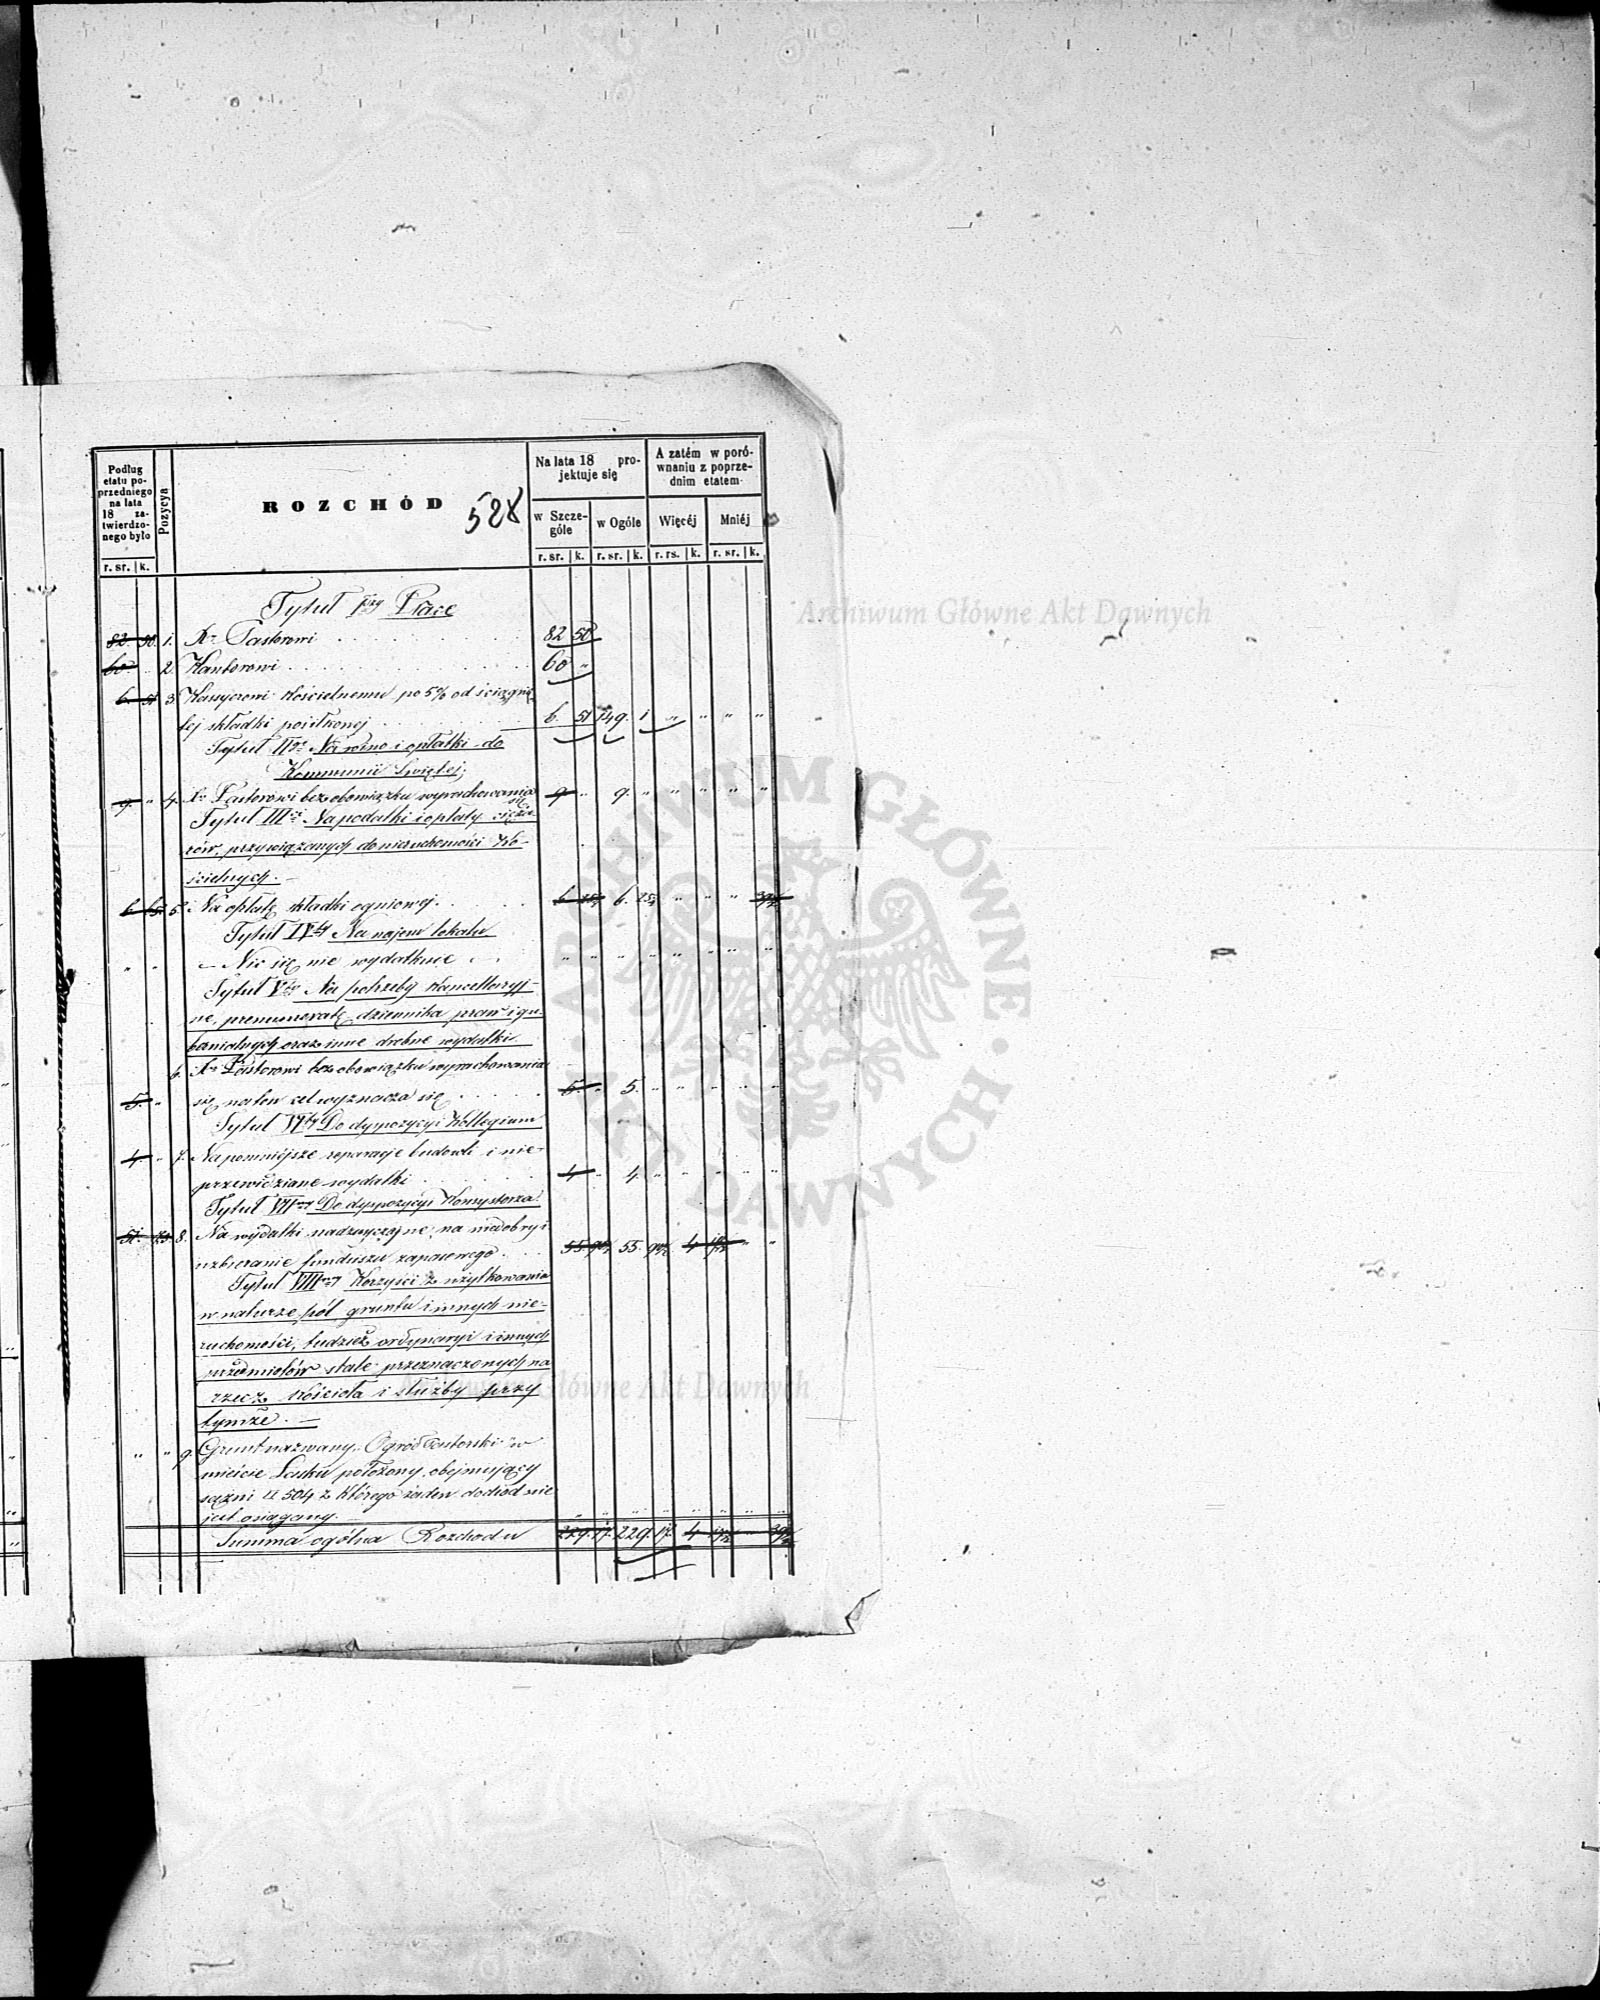 Podług etatu poprzedniego na lata 18 zatwierdzonego było
Pozycya
ROZCHÓD
528
Na lata 18 projektuje się
A zatém w porównaniu z poprzednim etatem
w Szczególe
w Ogóle
Więcéj
Mniéj
r. sr. k. r. sr. k. r. sr. k. r. rs. k. r. sr. k.
Tytuł Iszy Płace
82. 50. 1. Xr Pastorowi 82 50
60 " 2. Kantorowi 60 "
6. 51 3. Kassyerowi kościelnemu po 5% od ściągnię-
tej składki posiłkowej 6. 51 149. 1 " " " "
Tytuł IIgi Na wino i opłatki do
Kommunii Świętej;
9. " 4. Xr Pastorowi bez obowiązku wyrachowania się 9 " 9. " " " " "
Tytuł IIIci Na podatki i opłaty cięża-
rów, przywiązanych do nieruchomości Ko-
ścielnych. –
6 65 5. Na opłatę składki ogniowej 6 25½ 6. 25½ " " " 39½
Tytuł IVty Na najem lokalu
" " – Nic się nie wydatkuje – " " " " " " " "
Tytuł Vty Na potrzeby kancellaryj-
ne, prenumeratę dziennika praw i gu-
bernialnych oraz inne drobne wydatki
6. Xr Pastorowi bez obowiązku wyrachowania
5. " się na ten cel wyznacza się 5. " 5. " " " " "
Tytuł VIty Do dyspozycyi Kollegium
4. " 7. Na pomniejsze reparacje budowli i nie-
przewidziane wydatki 4 " 4. " " " " "
Tytuł VIImy Do dyspozycyi Konsystorza
51. 8. Na wydatki nadzwyczajne, na niedobry i
uzbieranie funduszu zapasowego 55. 55. 4 " "
Tytuł VIIImy Korzyści z użytkowania
w naturze pól, gruntu i innych nie-
ruchomości, tudzież ordynaryi i innych
przedmiotów stale przeznaczonych na
rzecz kościoła i służby przy
tymże. –
" " 9. Grunt nazwany "Ogród Pastorski" w
mieście Łasku położony, obejmujący
sążni □ 504 z którego żaden dochód nie
jest osiągany. – " " " " " " " "
Summa ogólna Rozchodu 229. 17. 229. 17. 4 39½
Archiwum Główne Akt Dawnych
Archiwum Główne Akt Dawnych
ARCHIWUM GŁÓWNE · AKT DAWNYCH ·